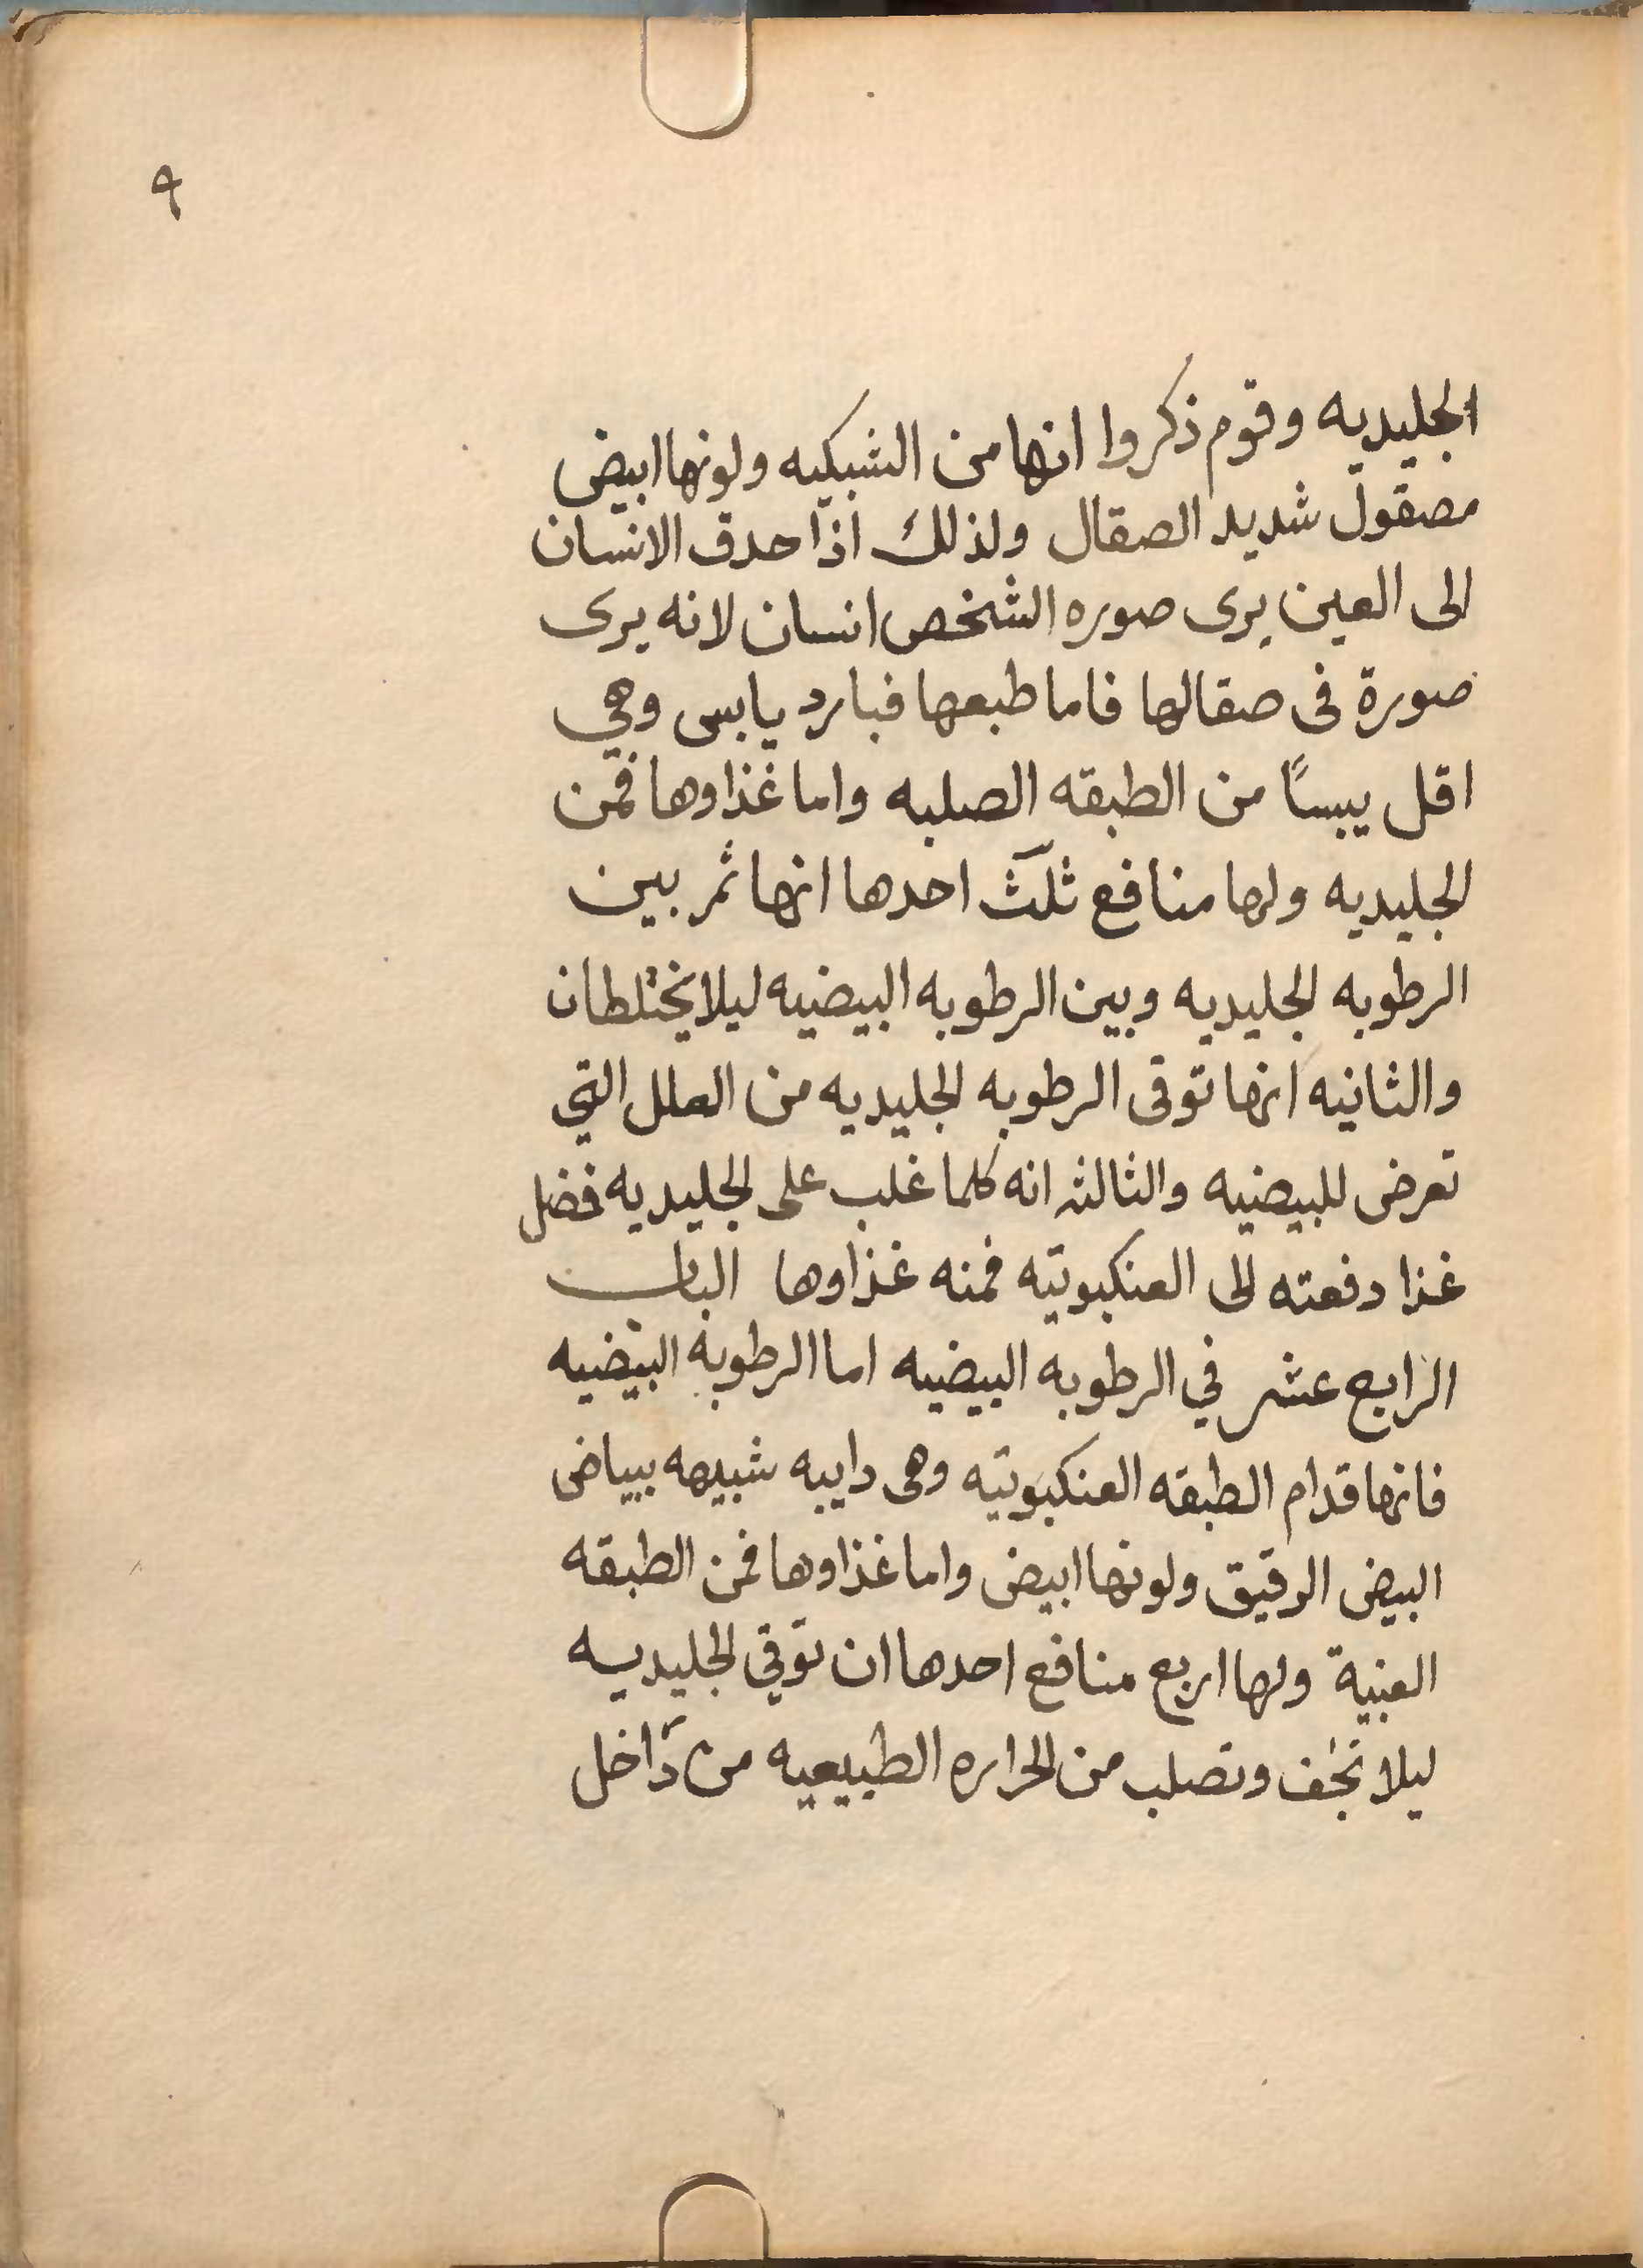 ٩
الجليديه وقوم ذكروا انها من الشبكيه ولونها ابيض
مصقول شديد الصقال ولذلك اذا حدق الانسان
الى العين يرى صوره الشخص انسان لانه يرى
صورة فى صقالها فاما طبعها فبارد يابس وهي
اقل يبسًا من الطبقه الصلبه واما غذاوها فمن
الجليديه ولها منافع ثلث احدها انها تمر بين
الرطوبه الجليديه وبين الرطوبه البيضيه ليلا يختلطان
والثانيه انها توقى الرطوبه الجليديه من العلل التي
تعرض للبيضيه والثالثه انه كلما غلب على الجليديه فضل
غذا دفعته الى العنكبوتيه فمنه غذاوها الباب
الرابع عشر في الرطوبه البيضيه اما الرطوبه البيضيه
فانها قدام الطبقه العنكبوتيه وهى دايبه شبيهه ببياض
البيض الرقيق ولونها ابيض واما غذاوها فمن الطبقه
العنبية ولها اربع منافع احدها ان توقي الجليديه
ليلا تجف وتصلب من الحراره الطبيعيه من داخل